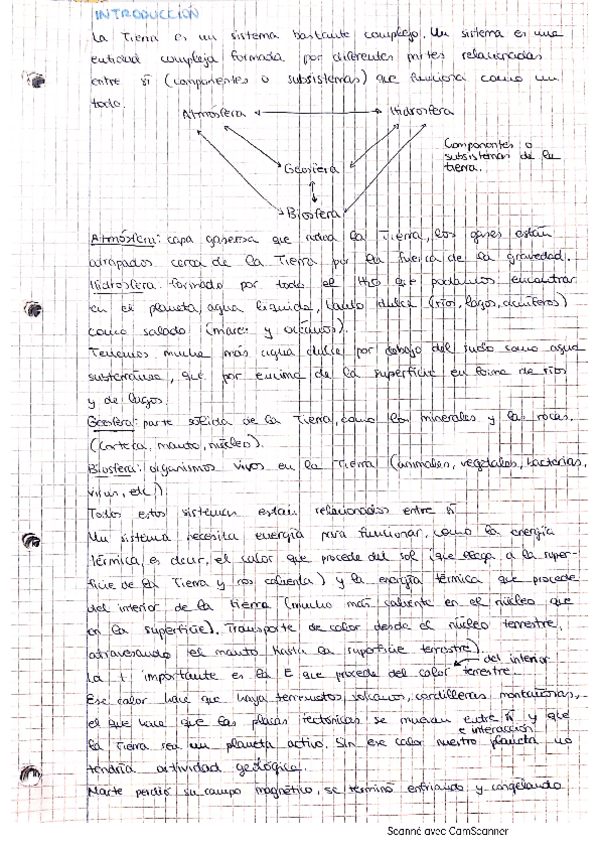 INTRODUCCIÓN
La Tierra es un sistema bastante complejo. Un sistema es una
entidad compleja formada por diferentes partes relacionadas
entre sí (componentes o subsistemas) que funciona como un
todo.
Atmósfera Hidrosfera
Componentes o
subsistemas de la
tierra.
Geosfera
Biosfera
Atmósfera: capa gaseosa que rodea la Tierra, los gases están
atrapados cerca de la Tierra por la fuerza de la gravedad.
Hidrosfera: formado por todo el H2O que podamos encontrar
en el planeta, agua líquida, tanto dulce (ríos, lagos, acuíferos)
como salado (mares y océanos).
Tenemos mucha más agua dulce por debajo del suelo como agua
subterránea, que por encima de la superficie en forma de ríos
y de lagos.
Geosfera: parte sólida de la Tierra, como los minerales y las rocas.
(corteza, manto, núcleo).
Biosfera: organismos vivos en la Tierra (animales, vegetales, bacterias,
virus, etc).
Todos estos sistemas están relacionados entre sí
Un sistema necesita energía para funcionar, como la energía
térmica, es decir, el calor que procede del sol (que llega a la super-
ficie de la Tierra y nos calienta) y la energía térmica que procede
del interior de la tierra (mucho más caliente en el núcleo que
en la superficie). Transporte de calor desde el núcleo terrestre,
atravesando el manto hasta la superficie terrestre).
del interior
La + importante es la E que procede del calor terrestre.
Ese calor hace que haya terremotos, volcanes, cordilleras montañosas,
el que hace que las placas tectónicas se muevan entre sí y que
e interacción
la Tierra sea un planeta activo. Sin ese calor nuestro planeta no
tendría actividad geológica.
Marte perdió su campo magnético, se terminó enfriando y congelando
Scanné avec CamScanner